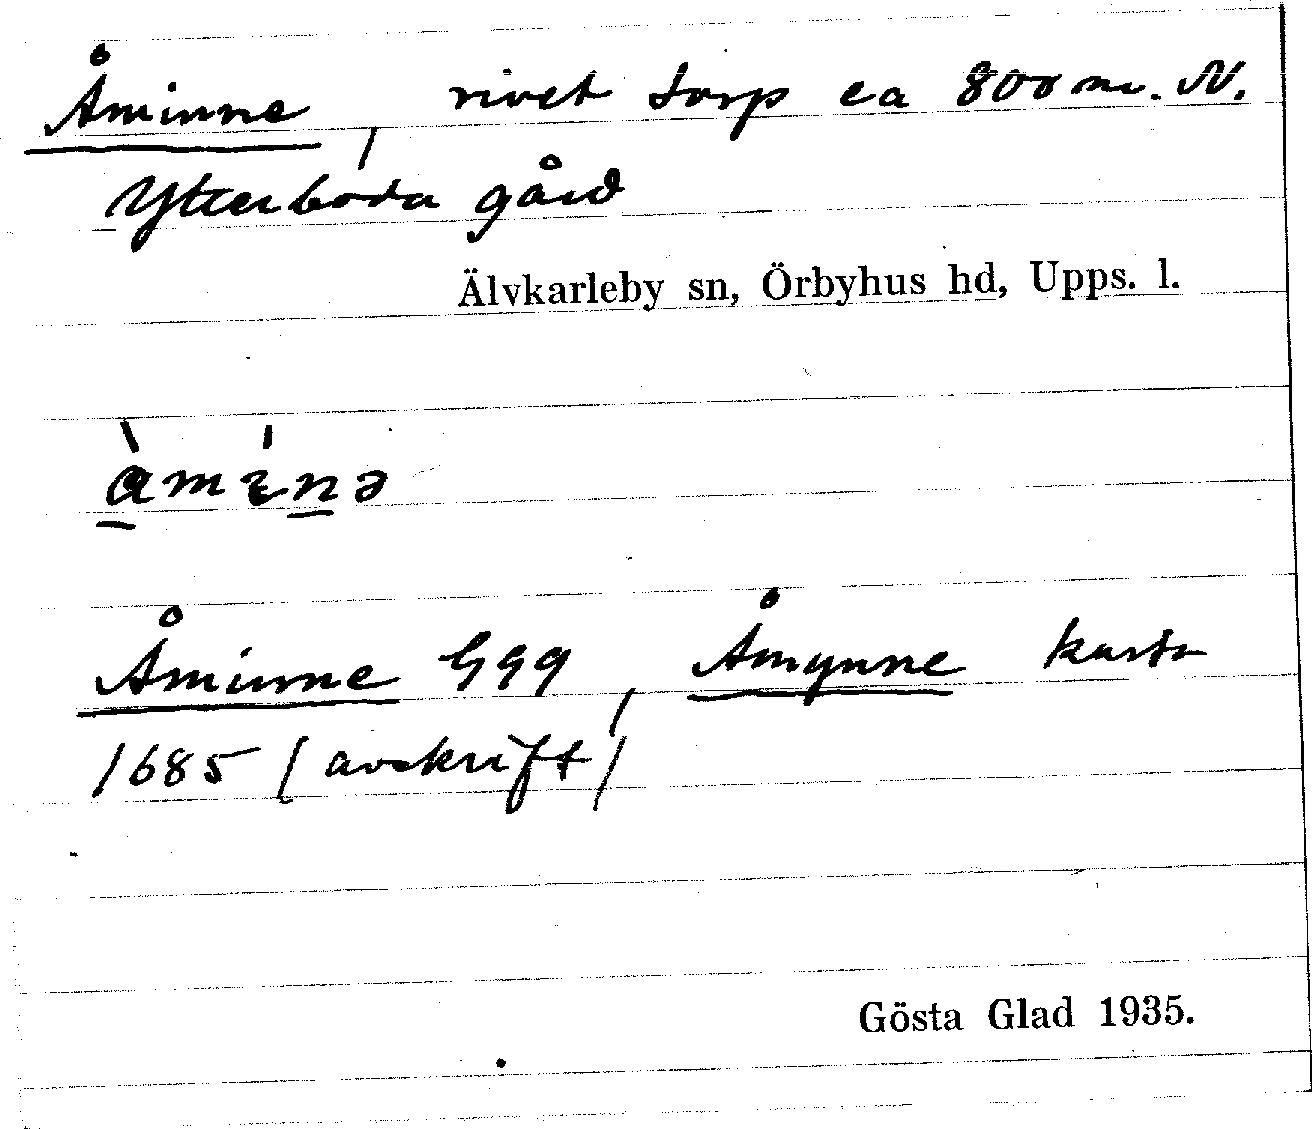 Åminne, rivet torp ca 800 m. N.
Ytterboda gård
Älvkarleby sn, Örbyhus hd, Upps. l.
Åminne Ggg, Åmynne karta
1685 (avskrift)
Gösta Glad 1935.